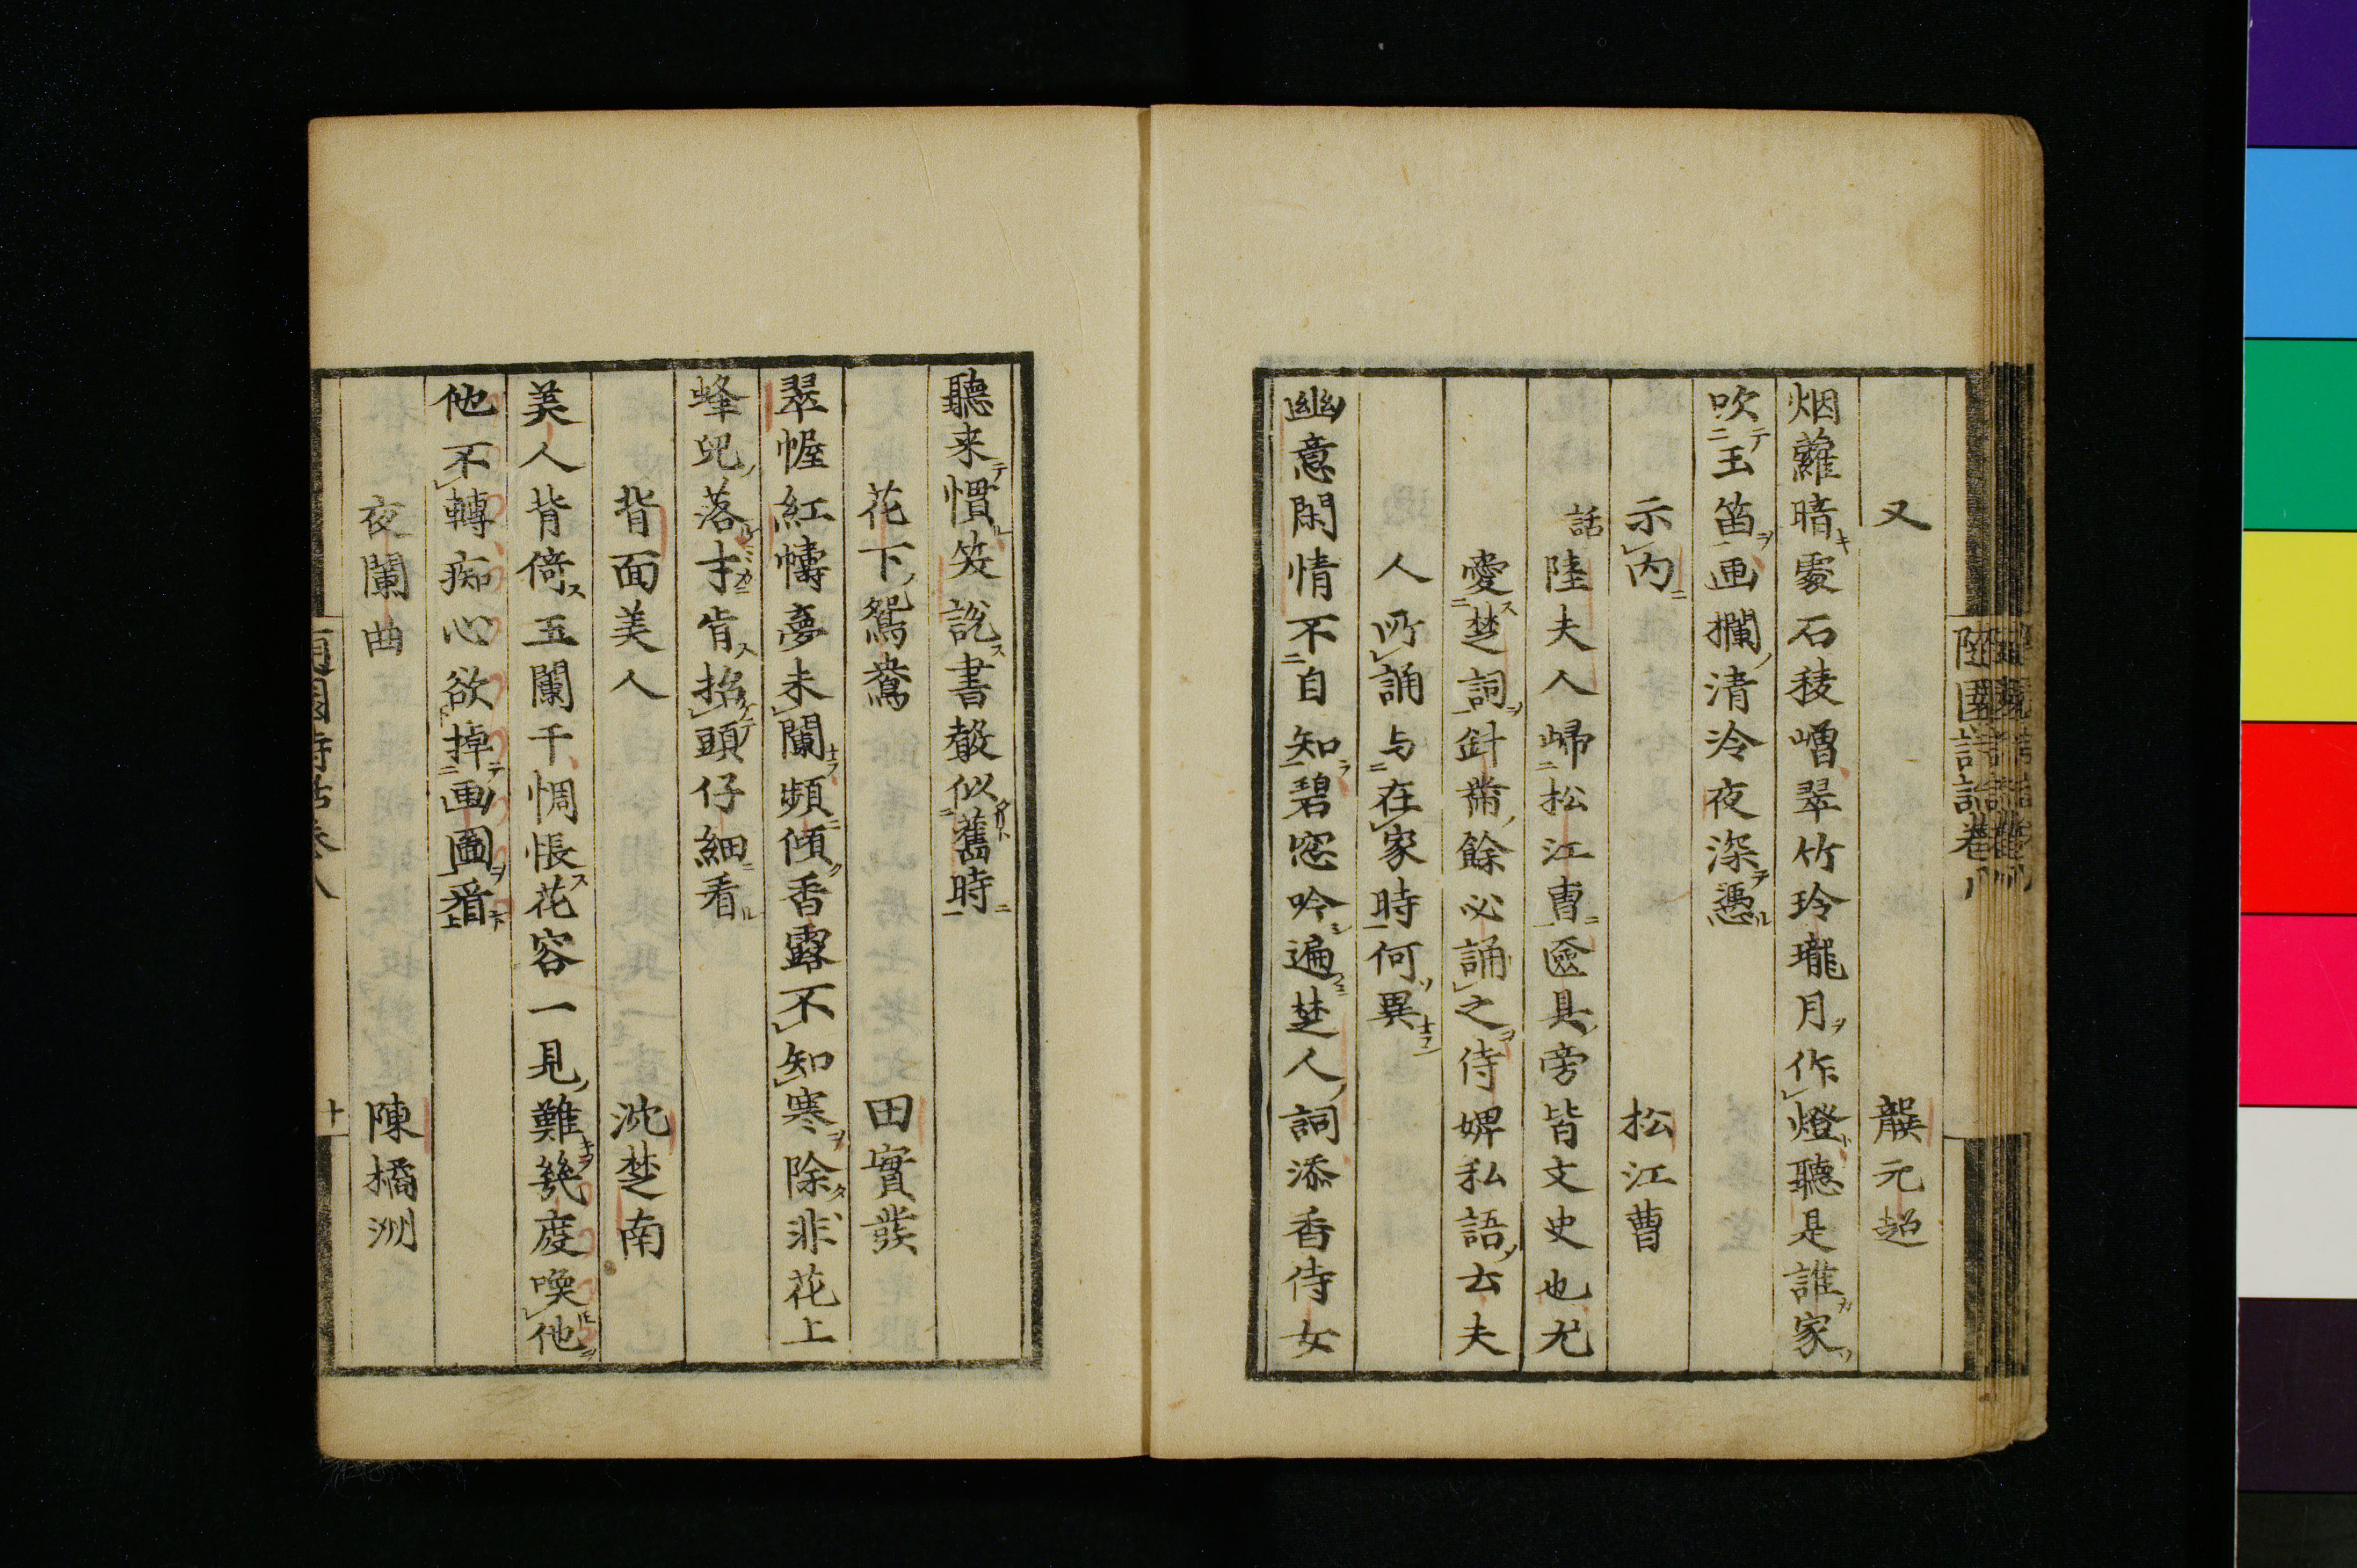 又　龔元超
烟蘿暗處石稜嶒翠竹玲瓏月作燈聽是誰家
吹玉笛画欄清冷夜深憑
示内　松江曹
話陸夫人歸松江曹奩具旁皆文史也尤
愛楚詞針黹餘必誦之侍婢私語云夫
人所誦与在家時何異
幽意閑情不自知碧窓吟遍楚人詞添香侍女
聽来慣笑說書聲似舊時
花下鴛鴦　田實發
翠幄紅幬夢未闌頻傾香露不知寒除非花上
蜂兒落才肯招頭仔細看
背面美人　沈楚南
美人背倚玉闌干惆悵花容一見難幾度喚他
他不轉痴心欲掉画圖看
夜闌曲　陳橘洲
卷八
十